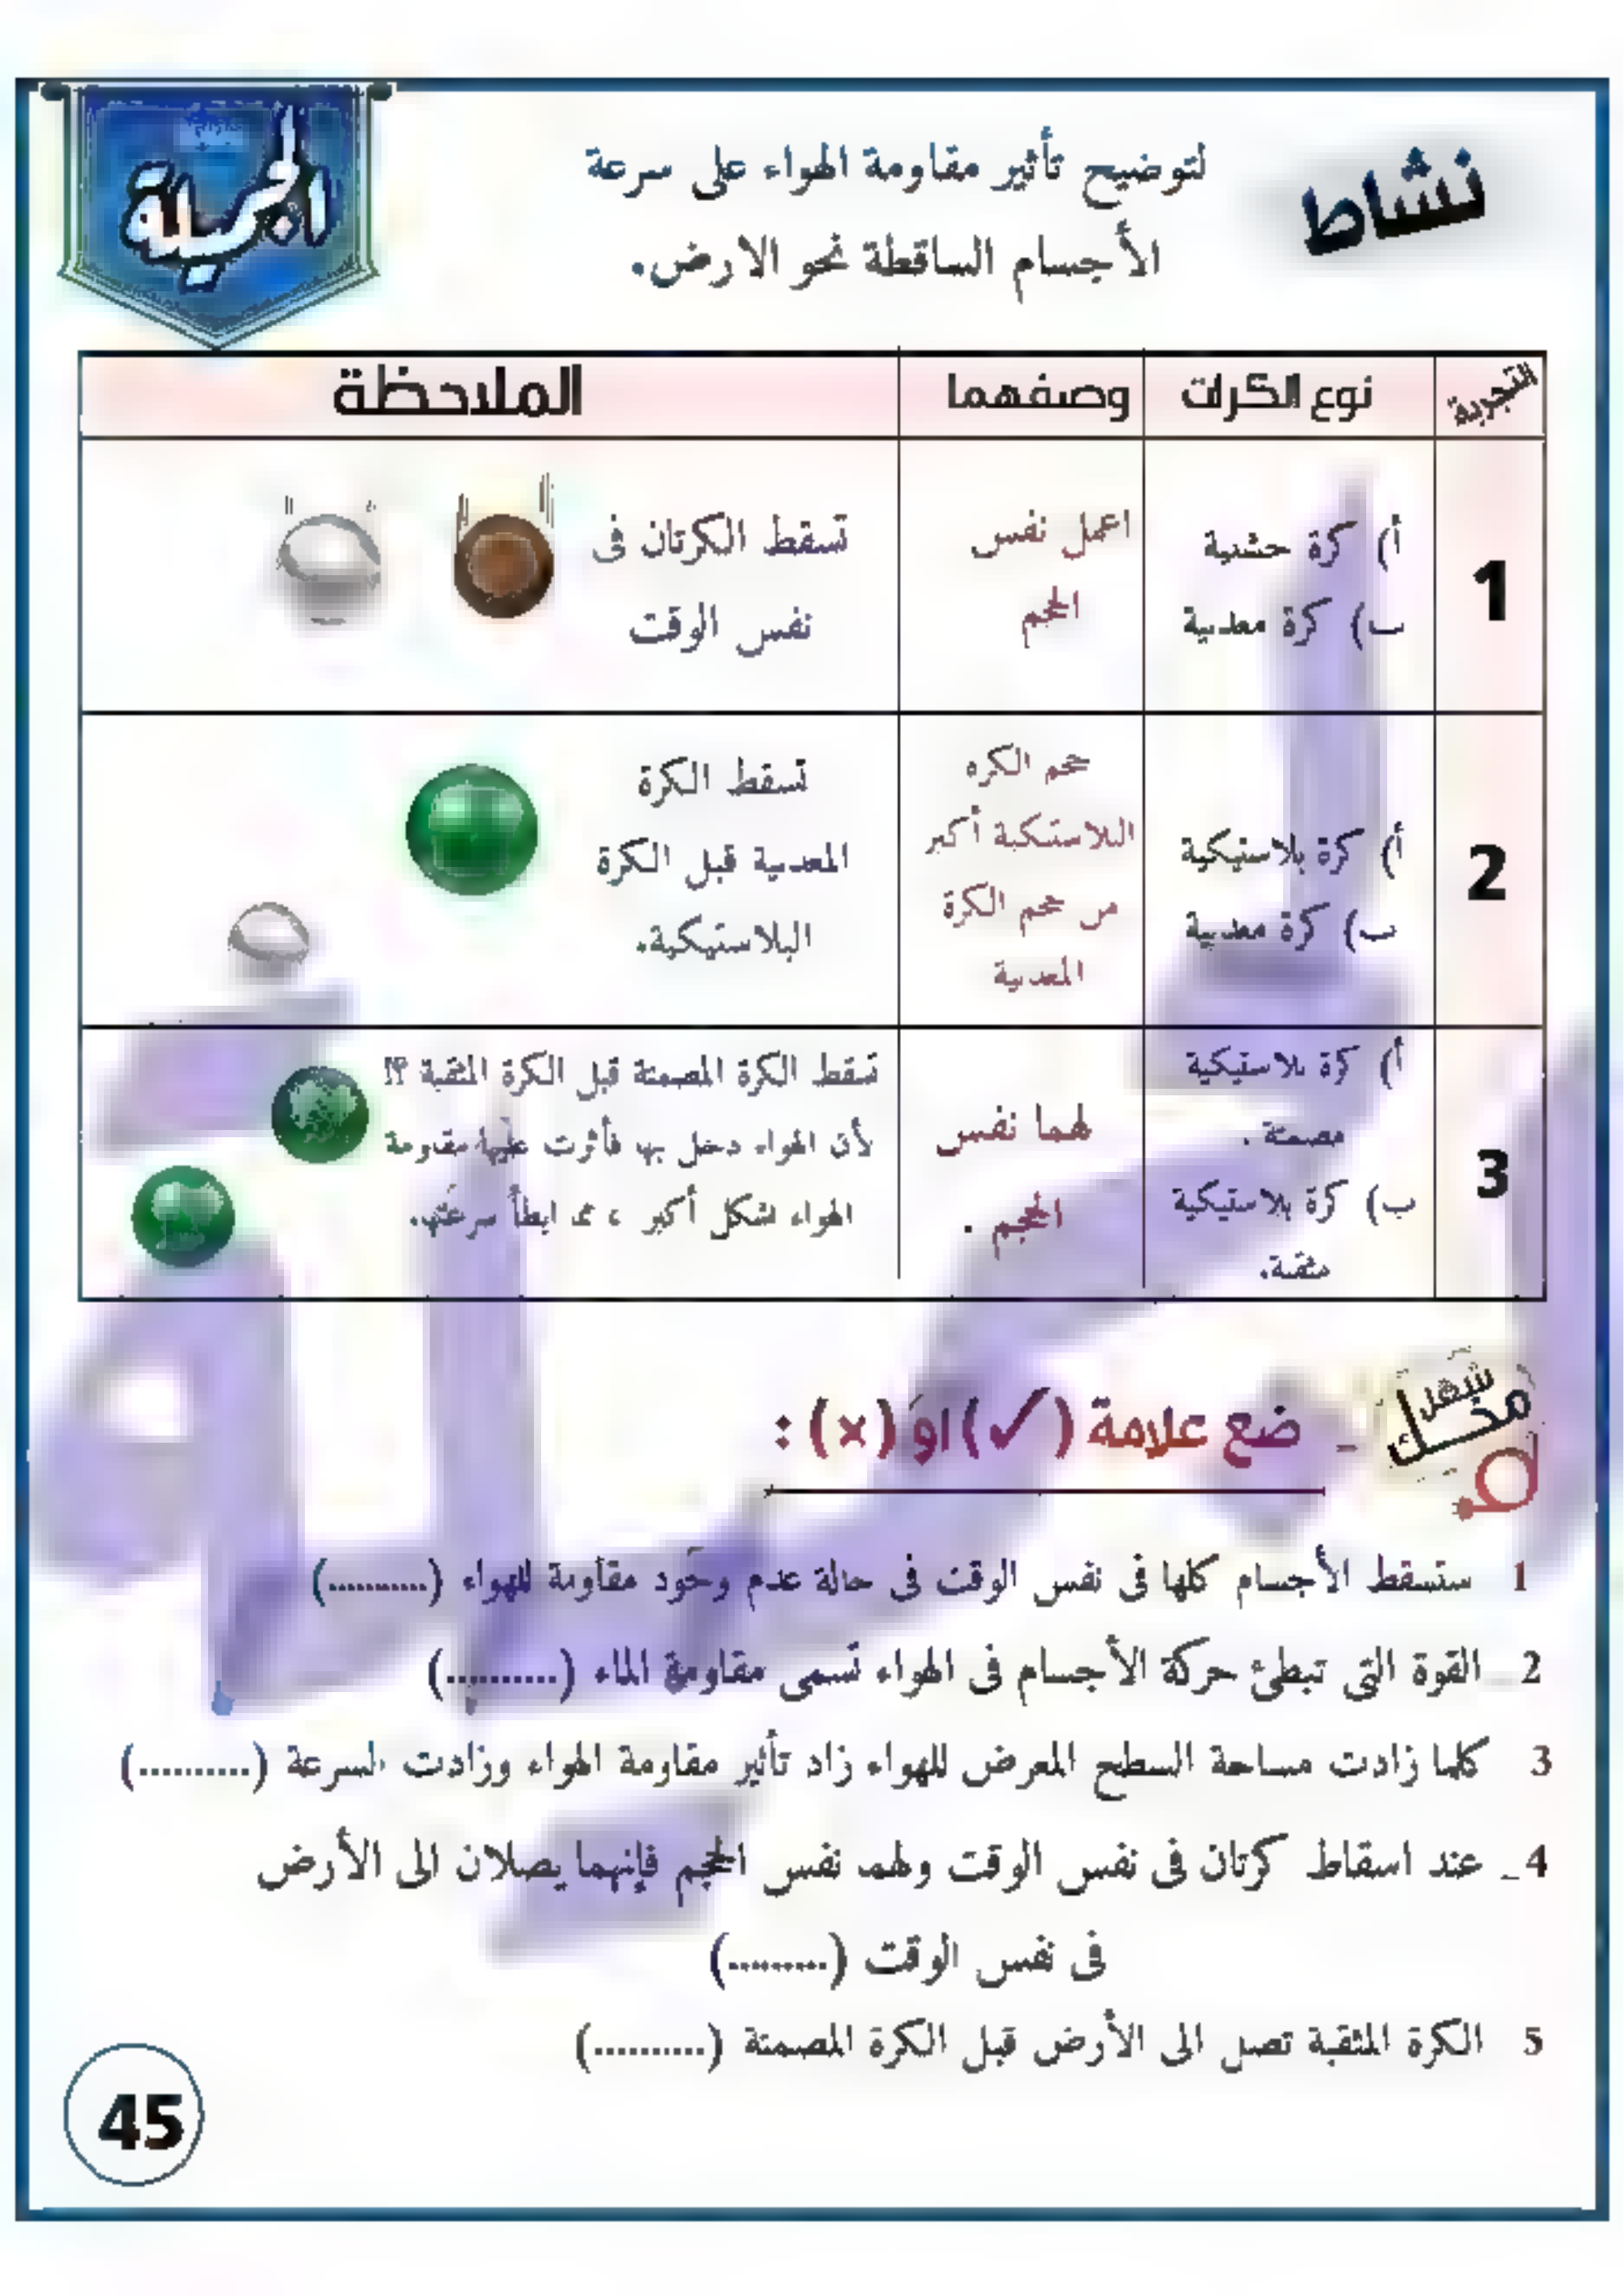 الجميلة
نشاط
لتوضيح تأثير مقاومة الهواء على سرعة
الأجسام الساقطة نحو الارض.
التجربة نوع الكرات وصفهما الملاحظة
1
أ) كرة خشبية
ب) كرة معدنية
نفس
الحجم
تسقط الكرتان فى
نفس الوقت
2
أ) كرة بلاستيكية
ب) كرة معدنية
حجم الكره
البلاستيكية أكبر
من حجم الكرة
المعدنية
تسقط الكرة
المعدنية قبل الكرة
البلاستيكية.
3
أ) كرة بلاستيكية
مصمتة .
ب) كرة بلاستيكية
مثقبة.
لهما نفس
الحجم .
تسقط الكرة المصمتة قبل الكرة المثقبة ؟!
لأن الهواء دخل بها فأثرت عليها مقاومة
الهواء بشكل أكبر ، مما ابطأ سرعتها.
شغل مخك
ضع علامة (✓) او (×) :
1 ستسقط الأجسام كلها فى نفس الوقت فى حالة عدم وجود مقاومة للهواء (...........)
2_ القوة التى تبطئ حركة الأجسام فى الهواء تسمى مقاومة الماء (...........)
3 كلما زادت مساحة السطح المعرض للهواء زاد تأثير مقاومة الهواء وزادت السرعة (...........)
4_ عند اسقاط كرتان فى نفس الوقت ولهما نفس الحجم فإنهما يصلان الى الأرض
فى نفس الوقت (..........)
5 الكرة المثقبة تصل الى الأرض قبل الكرة المصمتة (...........)
45